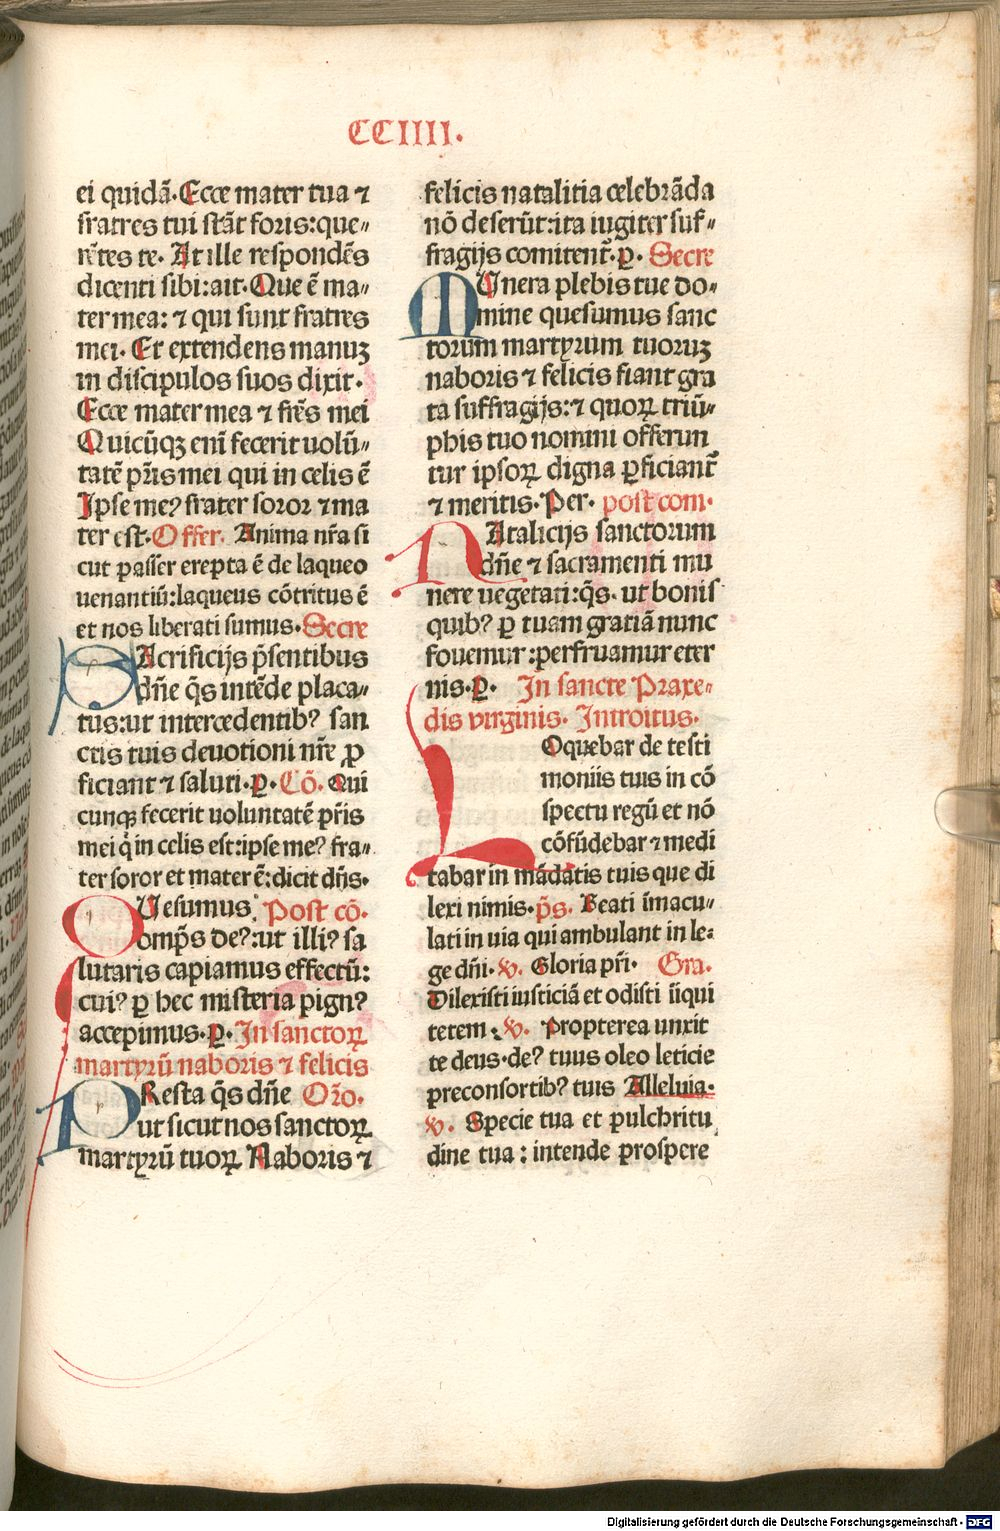 CCIIII.
ei quidā. Ecce mater tua ⁊
fratres tui stāt foris: que⸗
rētes te. At ille respondēs
dicenti sibi: ait. Que ē ma⸗
ter mea: ⁊ qui sunt fratres
mei. Et extendens manuꝫ
in discipulos suos dixit.
Ecce mater mea ⁊ fr̄es mei
Quicūqꝫ enī fecerit uolū⸗
tatē pr̄is mei qui in celis ē
Ipse meꝰ frater soror ⁊ ma
ter est. Offer. Anima nr̄a si
cut passer erepta ē de laqueo
uenantiū: laqueus cōtritus ē
et nos liberati sumus. Secre
SAcrificijs p̄sentibus
dn̄e q̄s intēde placa⸗
tus: ut intercedentibꝰ san
ctis tuis deuotioni nr̄e ꝓ
ficiant ⁊ saluti. ꝑ. Cō. Qui
cunqꝫ fecerit uoluntatē pr̄is
mei q̇ in celis est: ipse meꝰ fra⸗
ter soror et mater ē: dicit dn̄s.
QUesumus. Post cō.
omp̄s deꝰ: ut illiꝰ sa
lutaris capiamus effectū:
cuiꝰ ꝑ hec misteria pignꝰ
accepimus. ꝑ. In sanctoꝝ
martyrū naboris ⁊ felicis
PResta q̄s dn̄e Or̄o.
ut sicut nos sanctoꝝ
martyrū tuoꝝ Naboris ⁊
felicis natalitia celebrāda
nō deserūt: ita iugiter suf⸗
fragijs comitent̄. ꝑ. Secre
MUnera plebis tue do⸗
mine quesumus sanc
torum martyrum tuoruꝫ
naboris ⁊ felicis fiant gra
ta suffragijs: ⁊ quoꝝ triū⸗
phis tuo nomini offerun
tur ipsoꝝ digna ꝑficiant̄
⁊ meritis. Per. post com.
NAtalicijs sanctorum
dn̄e ⁊ sacramenti mu
nere uegetati: q̄s. ut bonis
quibꝰ ꝑ tuam gratiā nunc
fouemur: perfruamur eter
nis. ꝑ. In sancte Praxe⸗
dis virginis. Introitus.
LOquebar de testi
moniis tuis in cō
spectu regū et nō
cōfūdebar ⁊ medi
tabar in mādatis tuis que di
lexi nimis. p̄s. Beati īmacu⸗
lati in uia qui ambulant in le⸗
ge dn̄i. ℣. Gloria pr̄i. Gra.
Dilexisti iusticiā et odisti īiqui
tetem. ℣. Propterea unxit
te deus. deꝰ tuus oleo leticie
preconsortibꝰ tuis Alleluia.
℣. Specie tua et pulchritu
dine tua: intende prospere
Digitalisierung gefördert durch die Deutsche Forschungsgemeinschaft - DFG